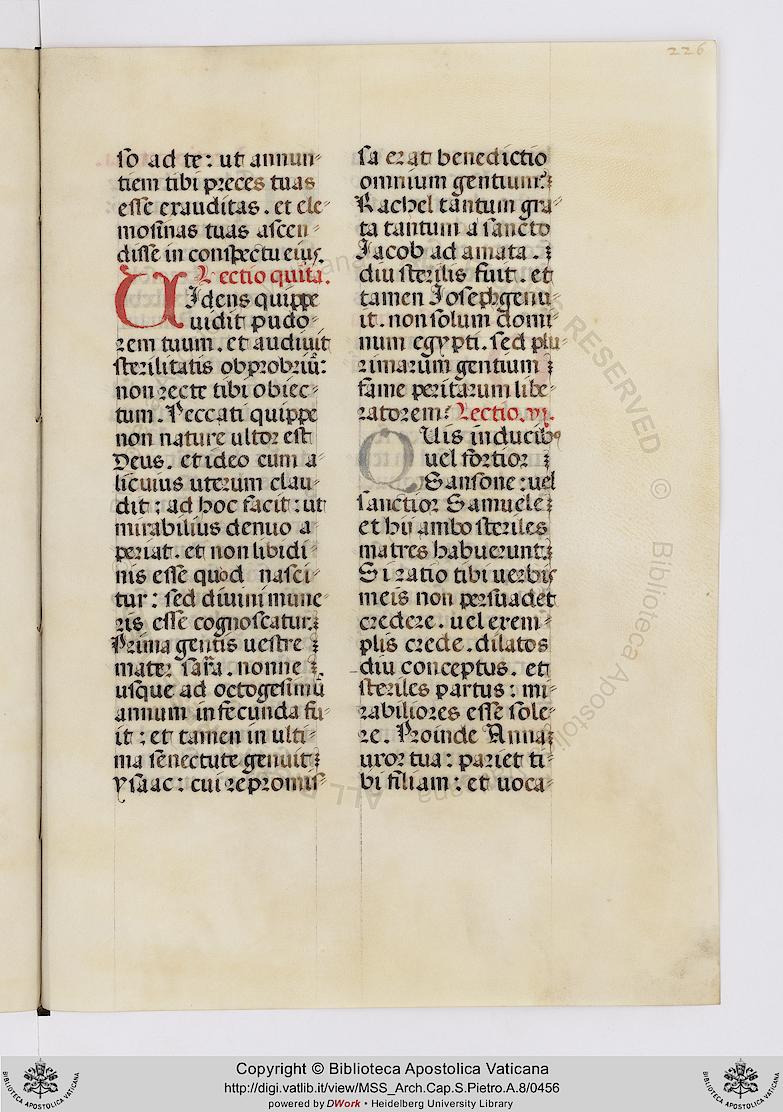 226
so ad te: ut annun⸗
tiem tibi preces tuas
esse exauditas. et ele⸗
mosinas tuas ascen⸗
disse in conspectu eius.
Lectio quīta.
Uidens quippe
uidit pudo⸗
rem tuum. et audiuit
sterilitatis obprobriū:
non recte tibi obiec⸗
tum. Peccati quippe
non nature ultor est
Deus. et ideo cum a⸗
licuius uterum clau⸗
dit: ad hoc facit: ut
mirabilius denuo a⸗
periat. et non libidi⸗
nis esse quod nasci⸗
tur: sed diuini mune⸗
ris esse cognoscatur.
Prima gentis uestre
mater sar̄a. nonne
usque ad octogesimū
annum infecunda fu⸗
it: et tamen in ulti⸗
ma senectute genuit
ysaac: cui repromis⸗
sa erat benedictio
omnium gentium:
Rachel tantum gra⸗
ta tantum a sancto
Jacob ad amata.
diu sterilis fuit. et
tamen Joseph genu⸗
it. non solum domi⸗
num egypti. sed plu⸗
rimarum gentium
fame peritarum libe⸗
ratorem: Lectio. vi.
Quis in ducibꝰ
uel fortior
Sansone: uel
sanctior Samuele
et hii ambo steriles
matres habuerunt:
Si ratio tibi uerbis
meis non persuadet
credere. uel exem⸗
plis crede. dilatos
diu conceptus. et
steriles partus: mi⸗
rabiliores esse sole⸗
re. Proinde Anna
uxor tua: pariet ti⸗
bi filiam: et uoca⸗
ALL RIGHTS RESERVED © Biblioteca Apostolica Vaticana
Copyright © Biblioteca Apostolica Vaticana
http://digi.vatlib.it/view/MSS_Arch.Cap.S.Pietro.A.8/0456
powered by DWork • Heidelberg University Library
BIBLIOTECA APOSTOLICA VATICANA
BIBLIOTECA APOSTOLICA VATICANA